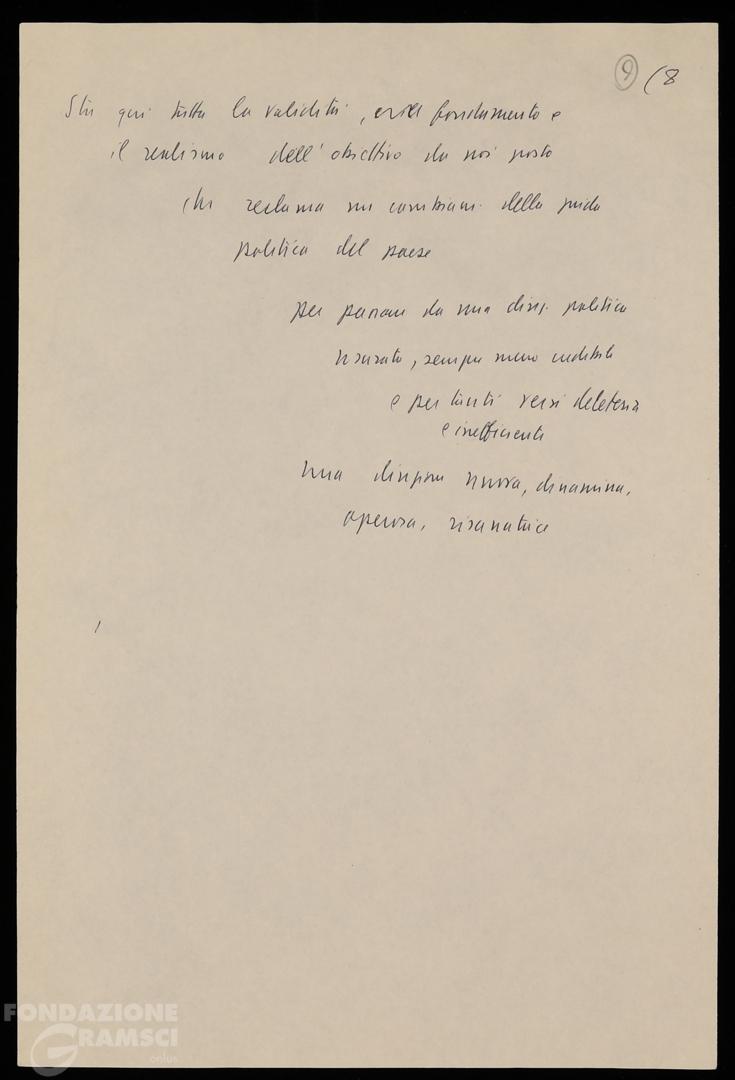 9 (8
Sta qui tutta la validità, fondamento e
il realismo dell'obiettivo da noi posto
che reclama un cambiam. della guida
politica del paese
per passare da una direz. politica
usurata, sempre meno credibile
e per tanti versi deleteria
e inefficiente
una nuova, dinamica,
operosa, risanatrice
FONDAZIONE
GRAMSCI
onlus